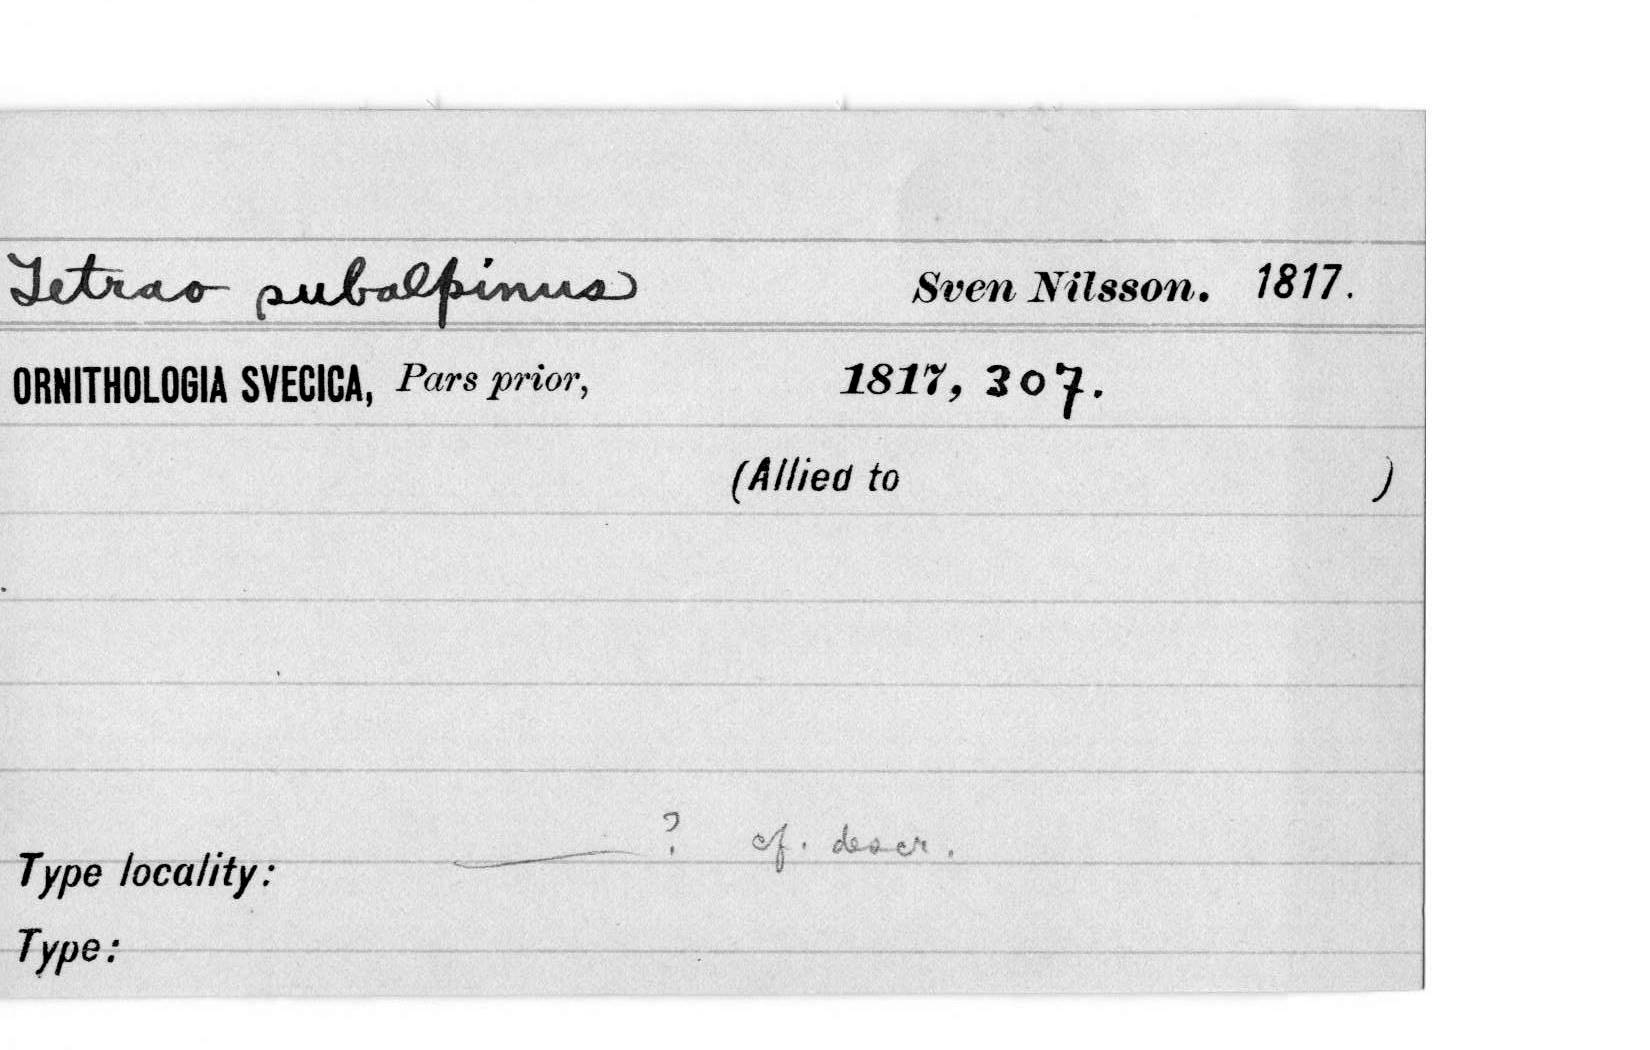 Tetrao subalpinus Sven Nilsson. 1817.
ORNITHOLOGIA SVECICA, Pars prior, 1817, 307.
(Allied to )
? cf. descr.
Type locality:
Type: